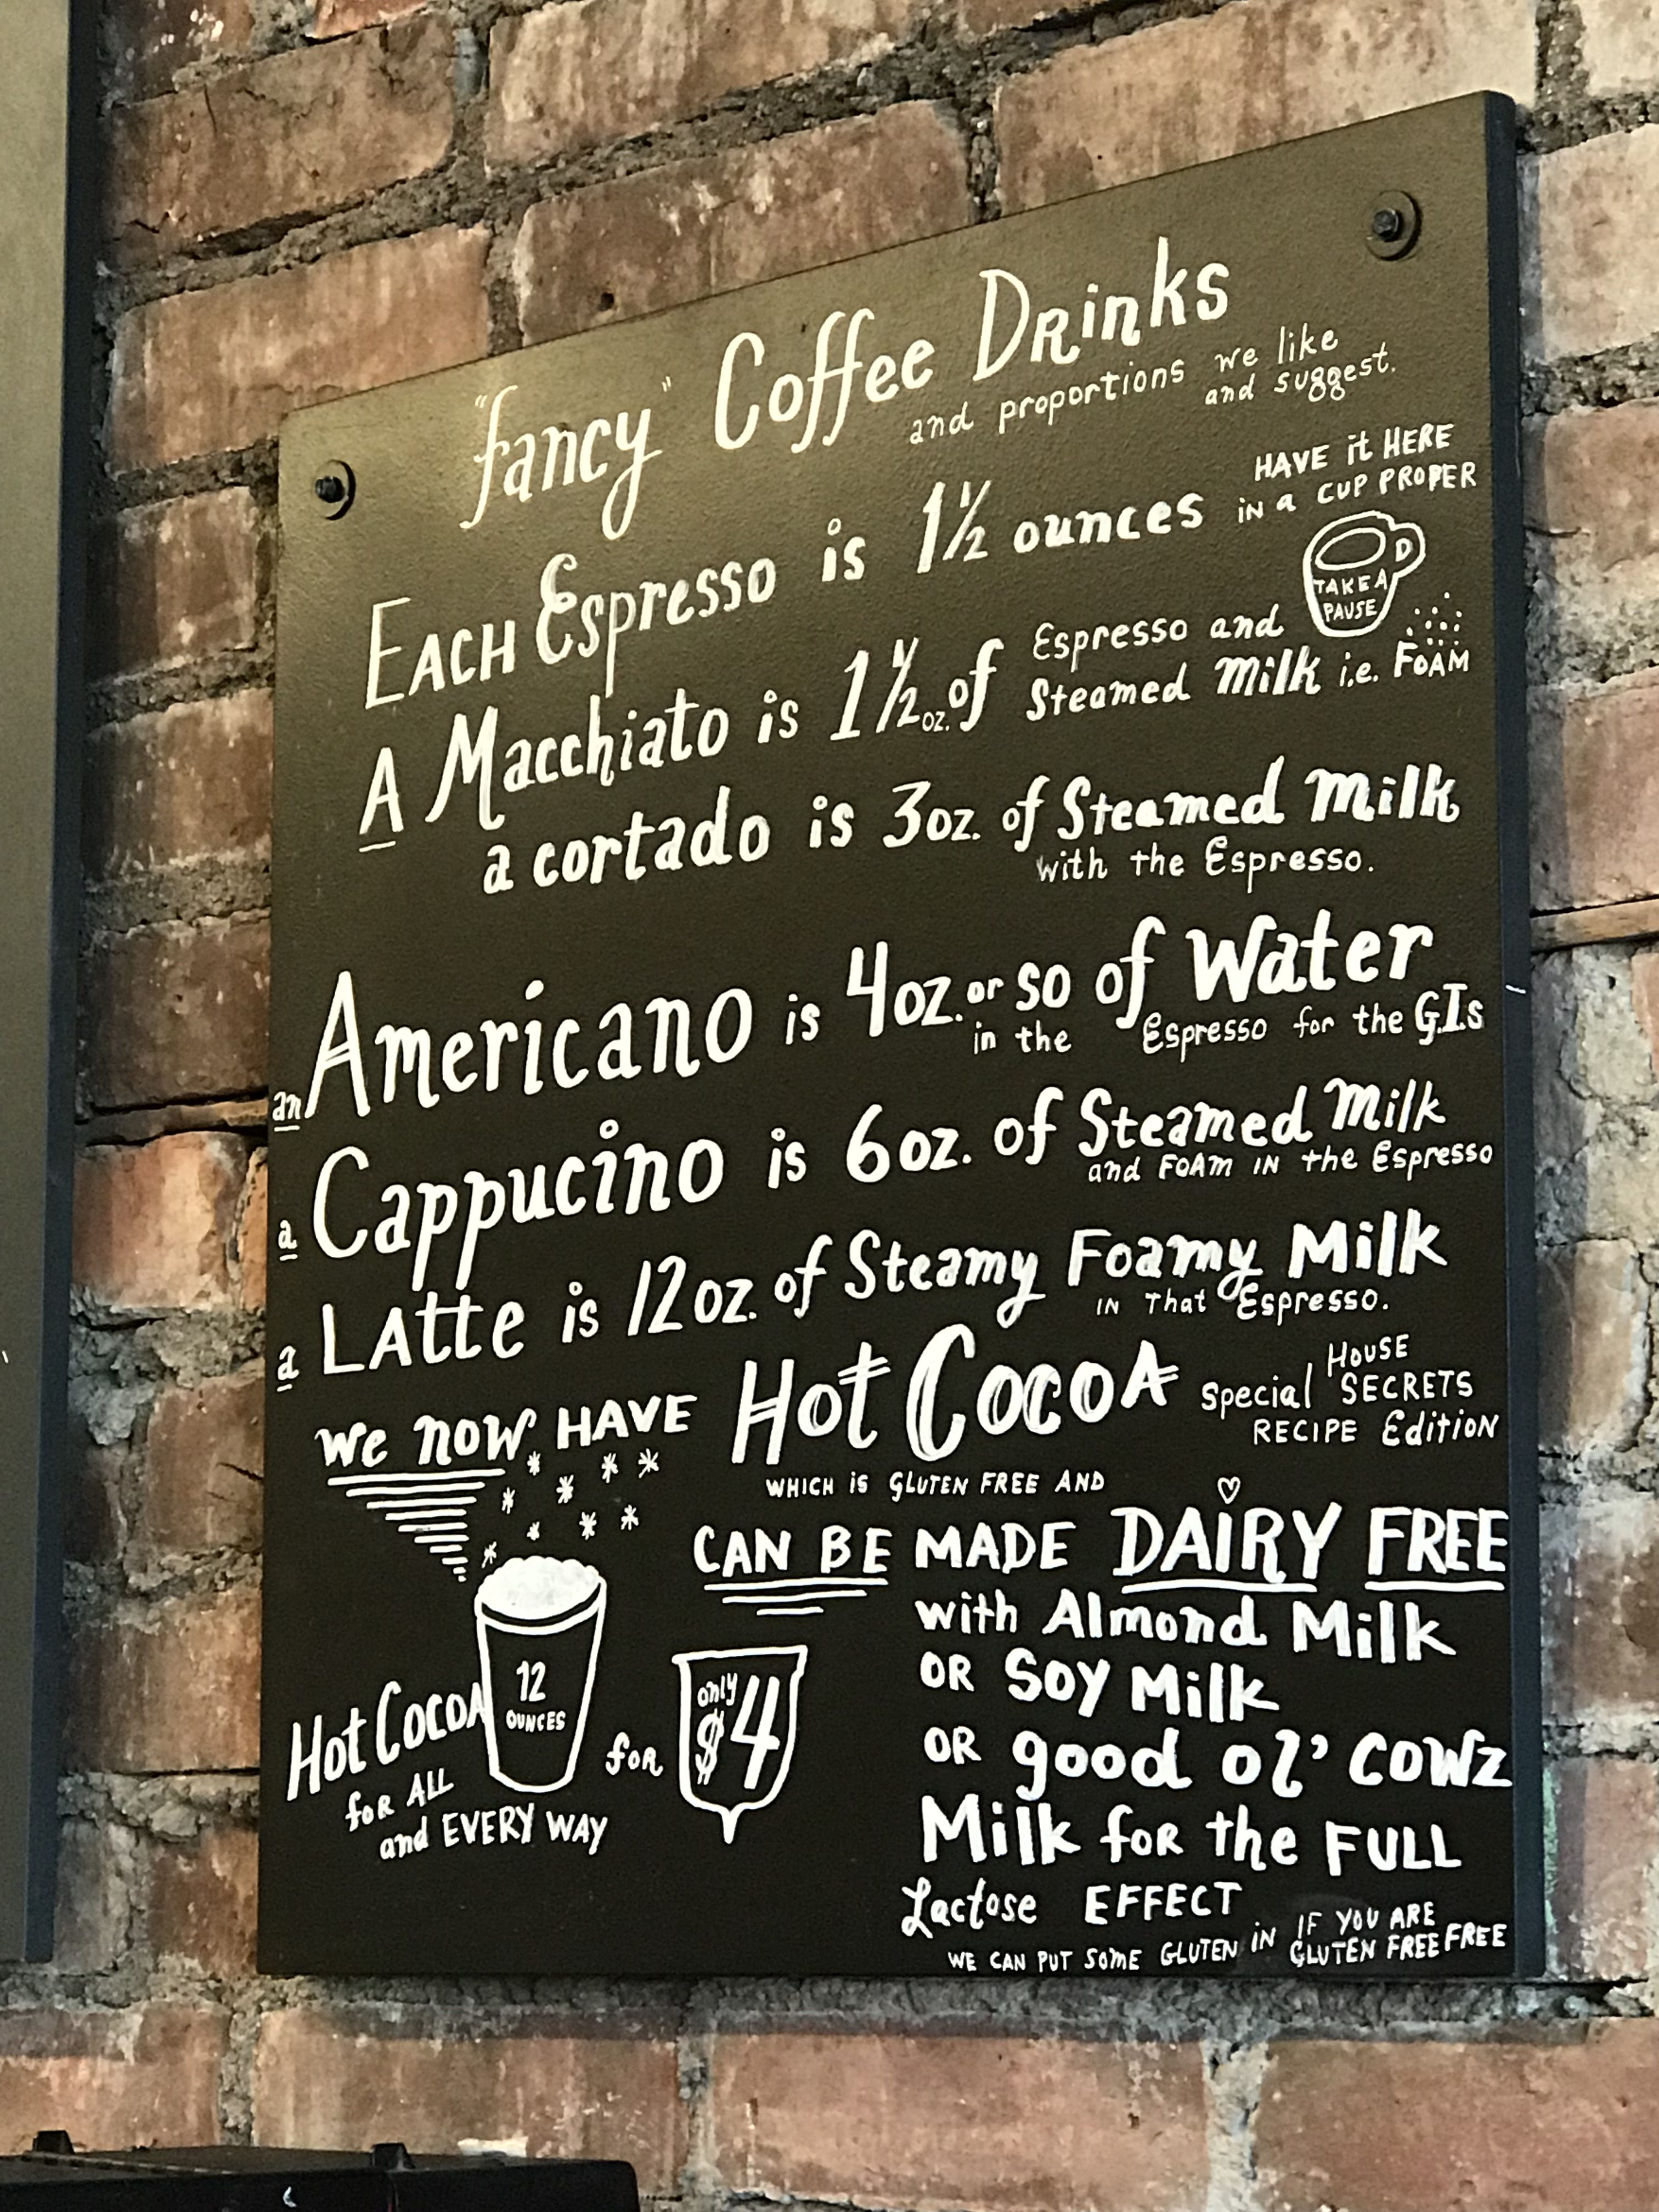 "fancy" Coffee Drinks
and proportions we like
and suggest.
EACH Espresso is 1½ ounces
HAVE it HERE
IN a CUP PROPER
TAKE A
PAUSE
A Macchiato is 1½ oz. of Espresso and
Steamed Milk i.e. FOAM
a cortado is 3oz. of Steamed Milk
with the Espresso.
an Americano is 4oz. or so of Water
in the Espresso for the G.I.s
a Cappucino is 6oz. of Steamed Milk
and FOAM IN the Espresso
a LAtte is 12oz. of Steamy Foamy Milk
IN That Espresso.
We now HAVE Hot CocoA
Special HOUSE
SECRETS
RECIPE Edition
WHICH is GLUTEN FREE AND
CAN BE MADE DAIRY FREE
with Almond Milk
OR Soy Milk
OR good ol' COWz
Milk foR the FULL
Lactose EFFECT
WE CAN PUT SOME GLUTEN IN IF YOU ARE
GLUTEN FREE FREE
Hot CocoA
12
OUNCES
foR
only
$4
foR ALL
and EVERY WAY